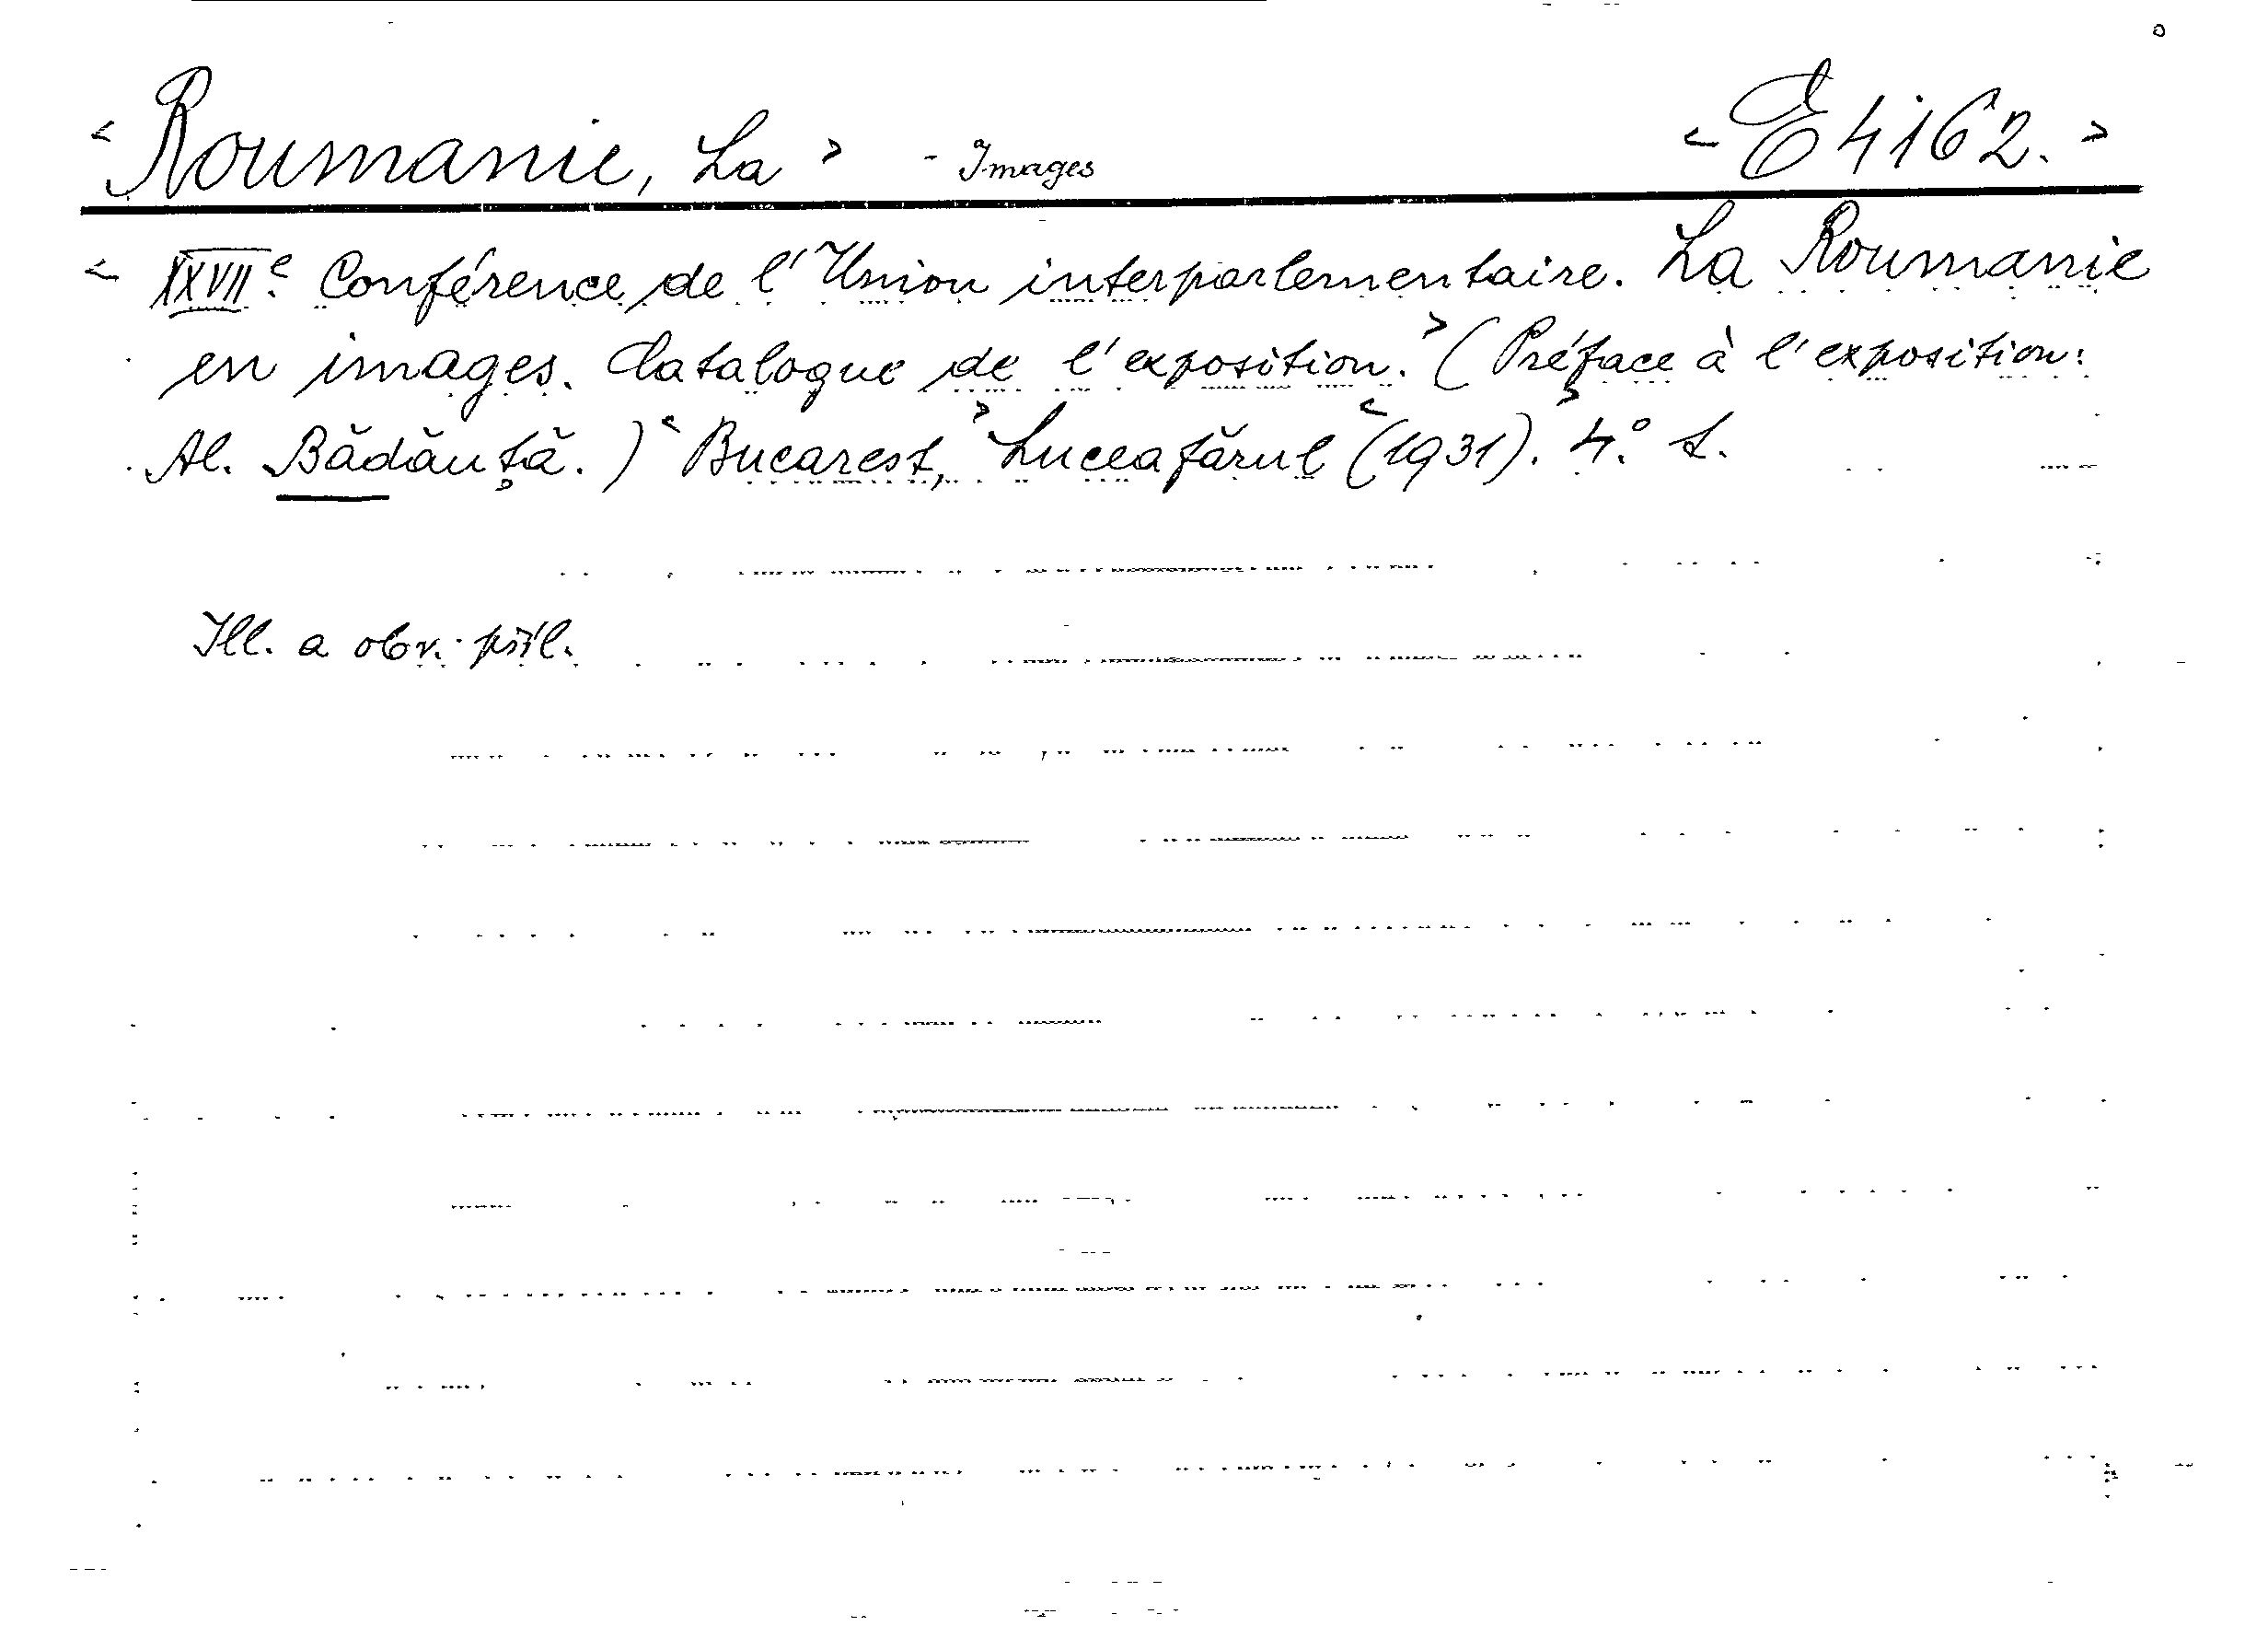 < Roumanie, La > - Images < E 4162. >
< XXVIIe. Conférence de l'Union interparlementaire. La Roumanie
en images. Catalogue de l'exposition. > (Préface à l'exposition:
Al. Bădăuţă.) < Bucarest, > Luceafărul < (1931). > 4°. S.
Ill. a obr. příl.